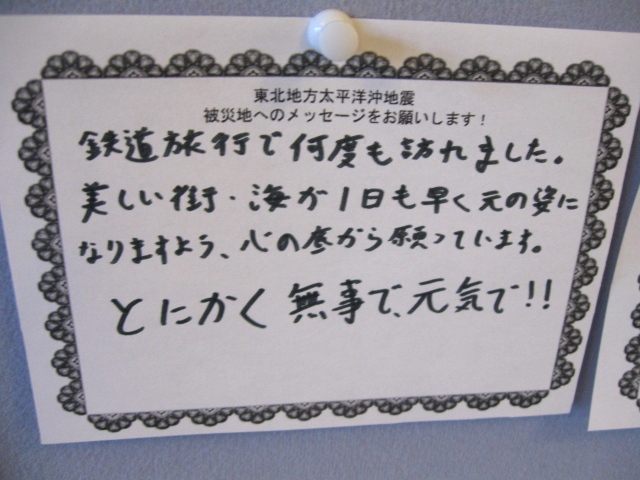 東北地方太平洋沖地震
被災地へのメッセージをお願いします！
鉄道旅行で何度も訪れました。
美しい街・海が1日も早く元の姿に
なりますよう、心の底から願っています。
とにかく無事で、元気で!!